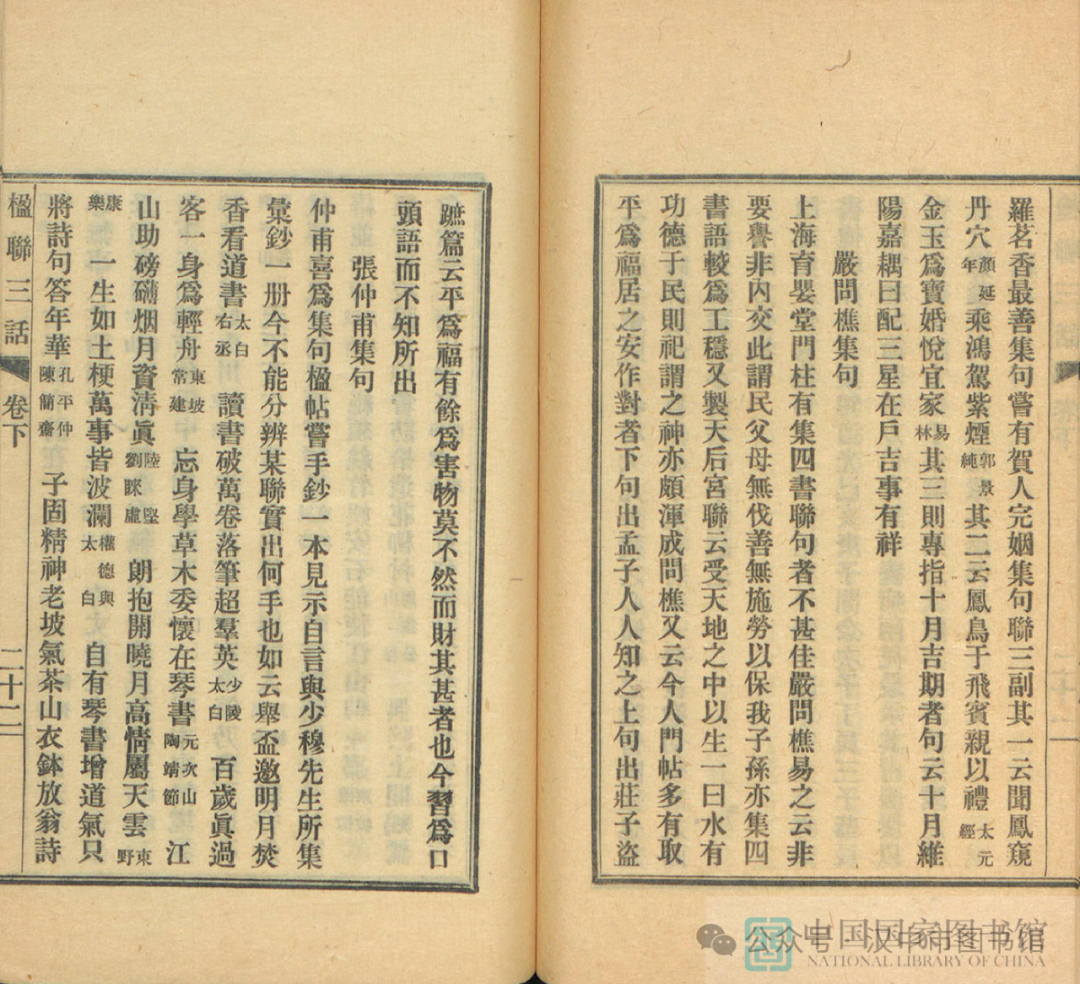 羅茗香最善集句嘗有賀人完姻集句聯三副其一云聞鳳窺
丹穴顏延年乘鴻駕紫煙郭景純其二云鳳鳥于飛賓親以禮太元經
金玉爲寶婚悅宜家易林其三則專指十月吉期者句云十月維
陽嘉耦曰配三星在戶吉事有祥
嚴問樵集句
上海育嬰堂門柱有集四書聯句者不甚佳嚴問樵易之云非
要譽非內交此謂民父母無伐善無施勞以保我子孫亦集四
書語較爲工穩又製天后宮聯云受天地之中以生一曰水有
功德于民則祀謂之神亦頗渾成問樵又云今人門帖多有取
平爲福居之安作對者下句出孟子人人知之上句出莊子盜
蹠篇云平爲福有餘爲害物莫不然而財其甚者也今習爲口
頭語而不知所出
張仲甫集句
仲甫喜爲集句楹帖嘗手鈔一本見示自言與少穆先生所集
彙鈔一册今不能分辨某聯實出何手也如云舉盃邀明月焚
香看道書太白右丞讀書破萬卷落筆超羣英少陵太白百歲眞過
客一身爲輕舟東坡常建忘身學草木委懷在琴書元次山陶靖節江
山助磅礴烟月資淸眞陸堅劉眎虛朗抱開曉月高情屬天雲東野
康樂一生如土梗萬事皆波瀾權德輿太白自有琴書增道氣只
將詩句答年華孔平仲陳簡齋子固精神老坡氣茶山衣鉢放翁詩
楹聯三話 卷下 二十二
中国国家图书馆
NATIONAL LIBRARY OF CHINA
公众号·汉中市图书馆